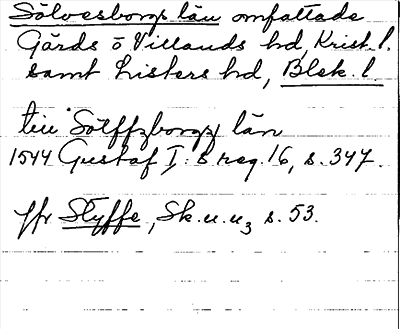 Sölvesborgs län omfattade
Gärds o Villands hd, Krist. l.
samt Listers hd, Blek. l.
till Sölffzborgz län
1544 Gustaf I:s reg. 16, s. 347.
jfr Styffe, Sk. u. u3 s. 53.